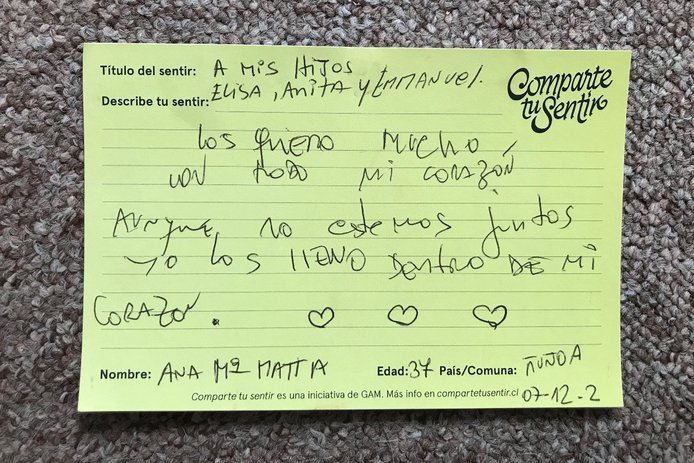 Título del sentir: A MIS HIJOS
Describe tu sentir: ELISA, ANITA Y EMMANUEL.
Comparte
tu Sentir
LOS QUIERO MUCHO,
CON TODO MI CORAZÓN
AUNQUE NO estemos juntos
YO LOS LLEVO DENTRO DE MI
CORAZON.
Nombre: ANA Mª MATTA Edad: 37 País/Comuna: ÑUÑOA
Comparte tu sentir es una iniciativa de GAM. Más info en compartetusentir.cl 07-12-2